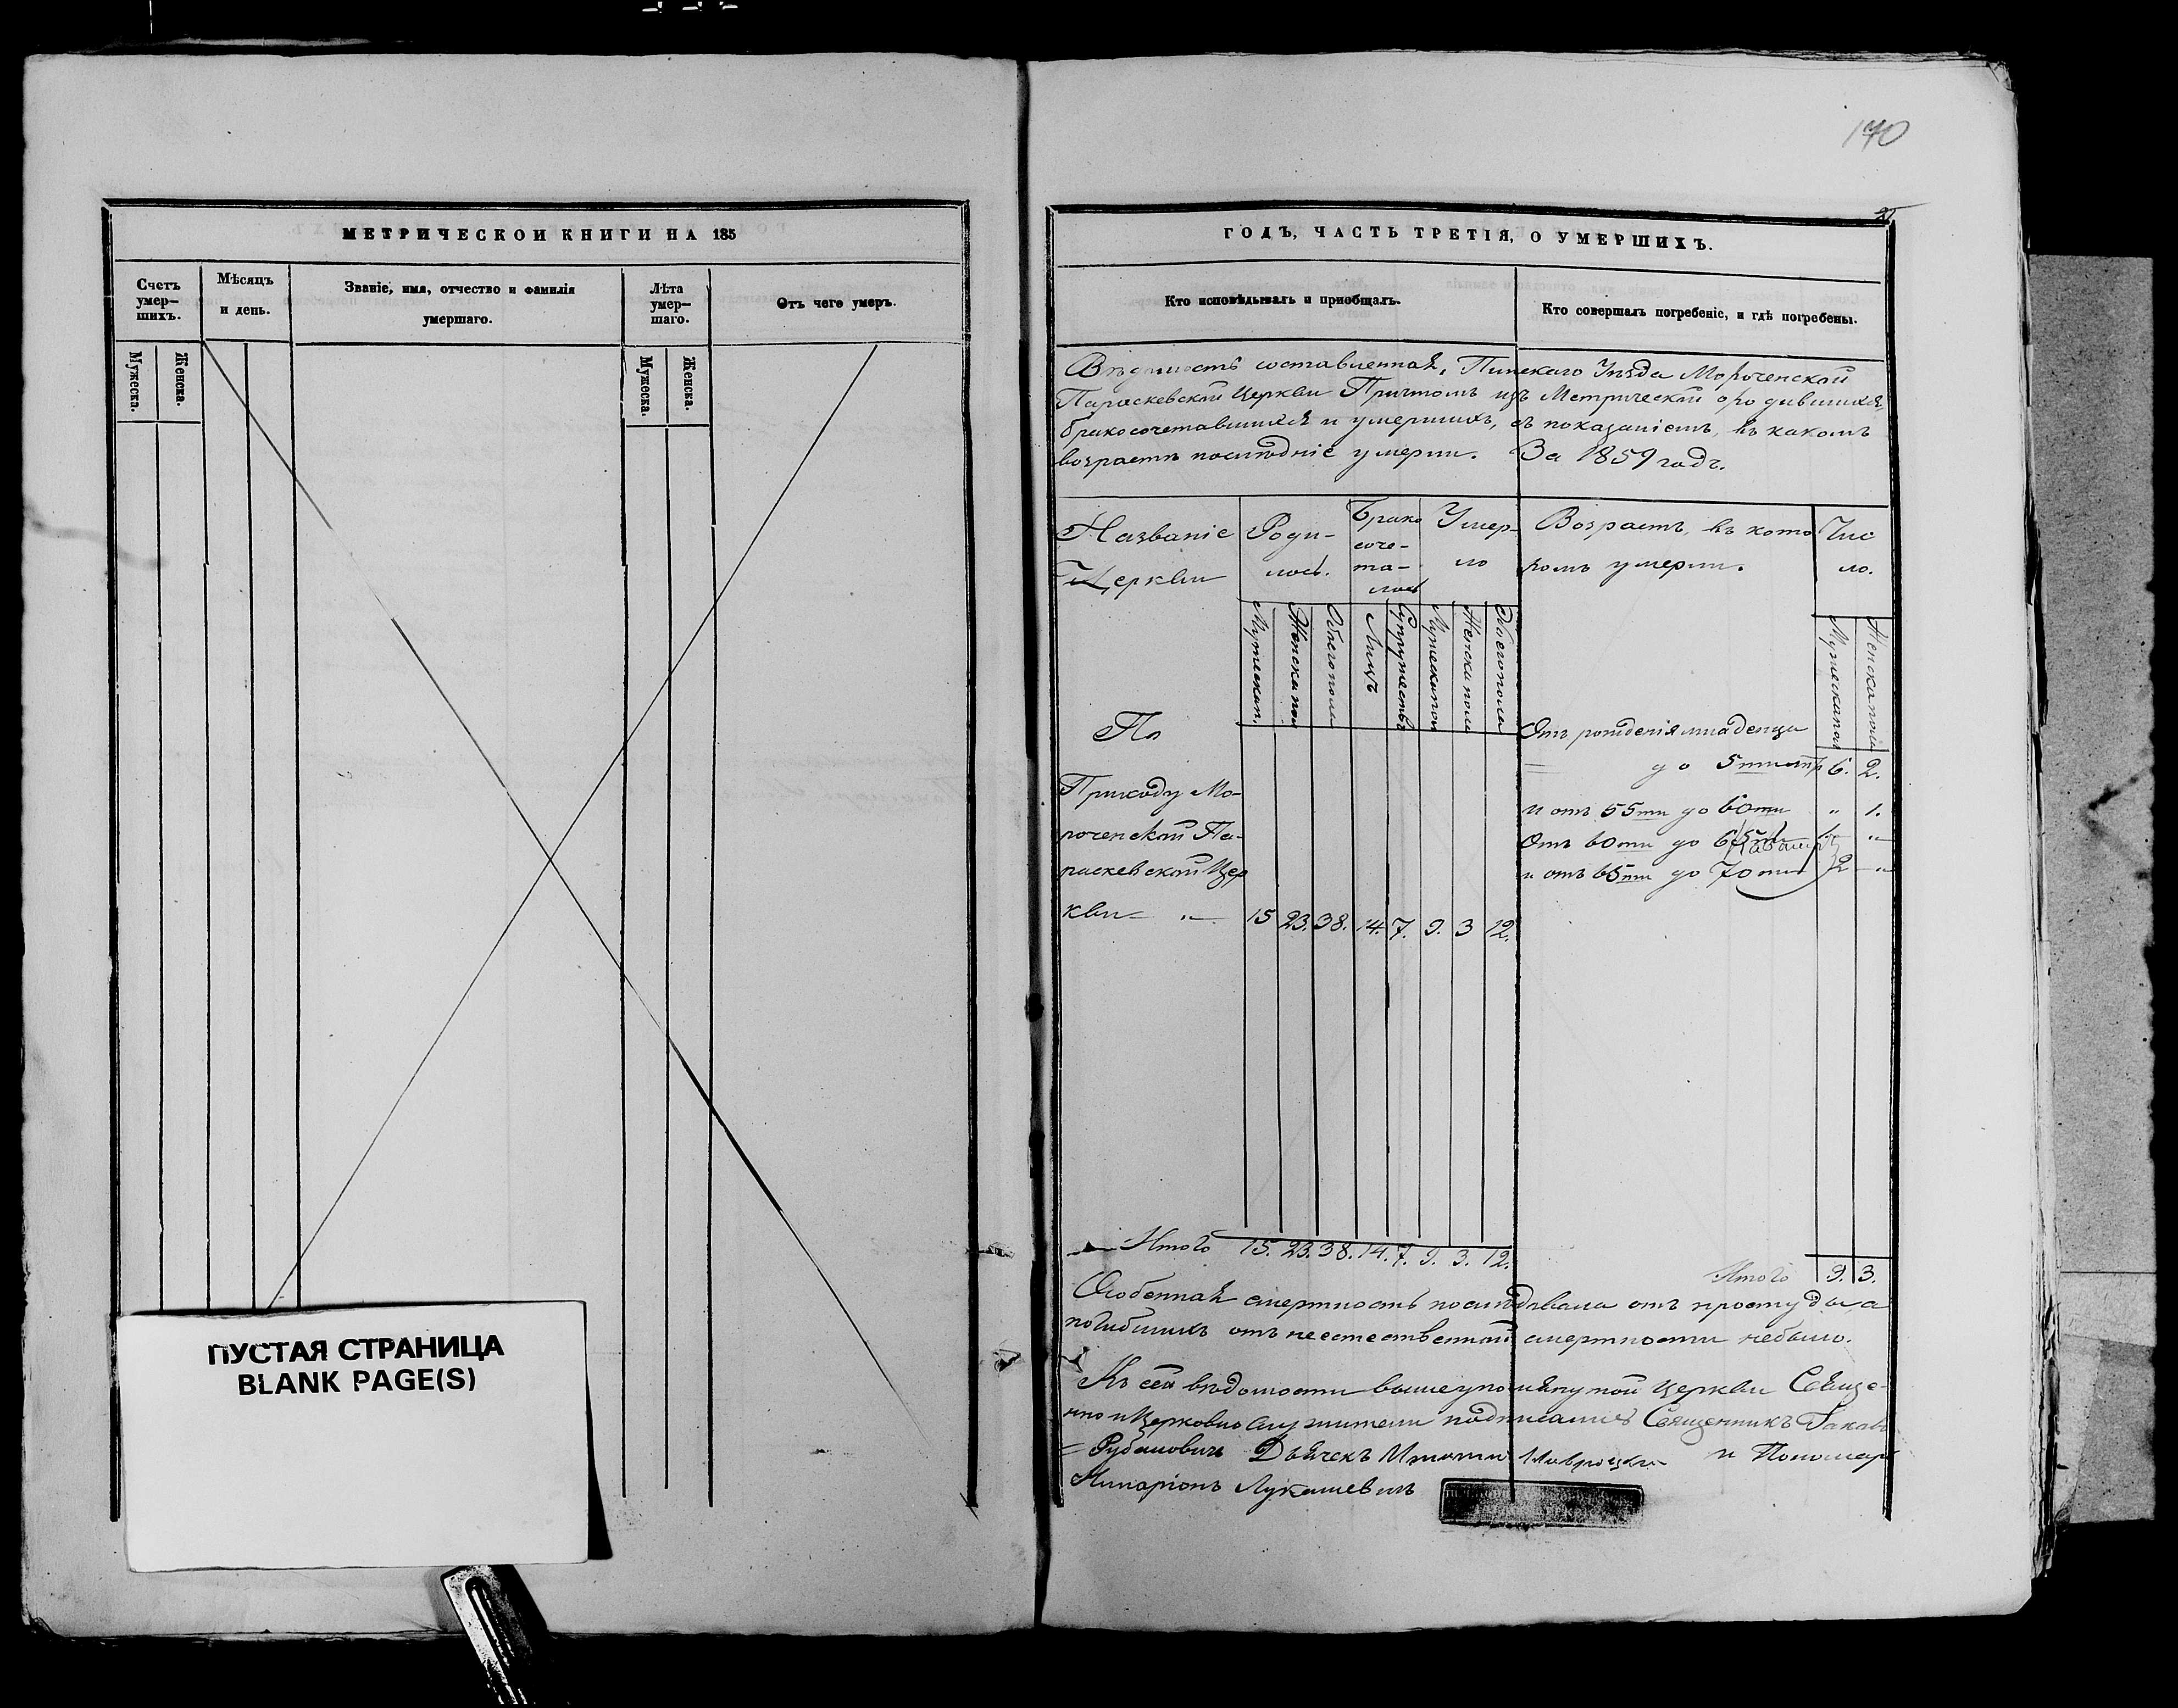 170
МЕТРИЧЕСКОЙ КНИГИ НА 185
Счетъ умер-шихъ.
Мѣсяцъ и день.
Званіе, имя, отчество и фамилія умершаго.
Лѣта умер-шаго.
Отъ чего умеръ.
Мужеска.
Женска.
Мужеска.
Женска.
ПУСТАЯ СТРАНИЦА
BLANK PAGE(S)
ГОДЪ, ЧАСТЬ ТРЕТІЯ, О УМЕРШИХЪ.
Кто исповѣдывалъ и пріобщалъ.
Кто совершалъ погребеніе, и гдѣ погребены.
Вѣдомость составленная, Пинскаго Уѣзда Мороченской
Параскевской Церкви Причтомъ изъ Метрической о родившихся,
бракосочетавшихся и умершихъ, съ показаніемъ, въ какомъ
возрастѣ послѣдніе умерли. За 1859 годъ.
Названіе Церкви
Роди-лось.
Брако соче-та-лось
Умер-ло
Возрастъ, въ кото
ромъ умерли.
Чис ло.
Мужескап.
Женска пол
Обоего пола
Лицъ
Супружествъ
Мужеска пол
Женска пола
Обоего пола
Мужеска пол
Женска пола
По
Приходу Мо-
роченской Па-
раскевской Цер
кви 15 23. 38. 14. 7. 9. 3 12.
Отъ рожденія младенца
до 5ти лѣтъ 6. 2.
и отъ 55ти до 60ти " 1.
Отъ 60ти до 65ти "
и отъ 65ти до 70ти 2 "
Итого 15. 23. 38. 14. 7. 9. 3. 12.
Итого 9. 3.
Особенная смертность послѣдовала отъ простуды а
погибшихъ отъ неестественной смертности небыло.
Къ сей вѣдомости вышеупомянутой Церкви Свяще-
нно и Церковно служители подписались Священникъ Іаковъ
Рубанович Дьячекъ и Пономарь
Иларіонъ Лукашевичъ